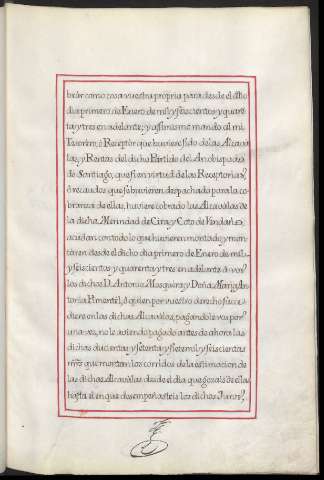 brar como cosa vuestra propria para desde el dho
dia primero de Enero de mil y seiscientos y quaren
ta y tres en adelante; y assimismo mando al mi
Tesorero, ò Receptor que huviere sido de las Alcava
las, y Rentas del dicho Partido del Arzobispado
de Santiago, que si en virtud de las Receptorias,
ò recaudos que se huvieren despachado para la co
branza de ellas, huviere cobrado las Alcavalas de
la dicha Merindad de Cira, y Coto de
acudan con todo lo que huvieren montado, y mon
taren desde el dicho dia primero de Enero de mil
y seiscientos y quarenta y tres en adelante à vos
los dichos D. Antonio Mosquera, y Doña Maria An
tonia Pimentel, ò quien por vuestro derecho suce
diere en las dichas Alcavalas, pagandole vos por
una vez, no le aviendo pagado antes de ahora las
dichas ducientas y setenta y siete mil y seiscientas
mrs. que montan los corridos de la estimacion de
las dichas Alcavalas desde el dia que gozais de ellas
hasta el en que desempeñasteis los dichos Juros,